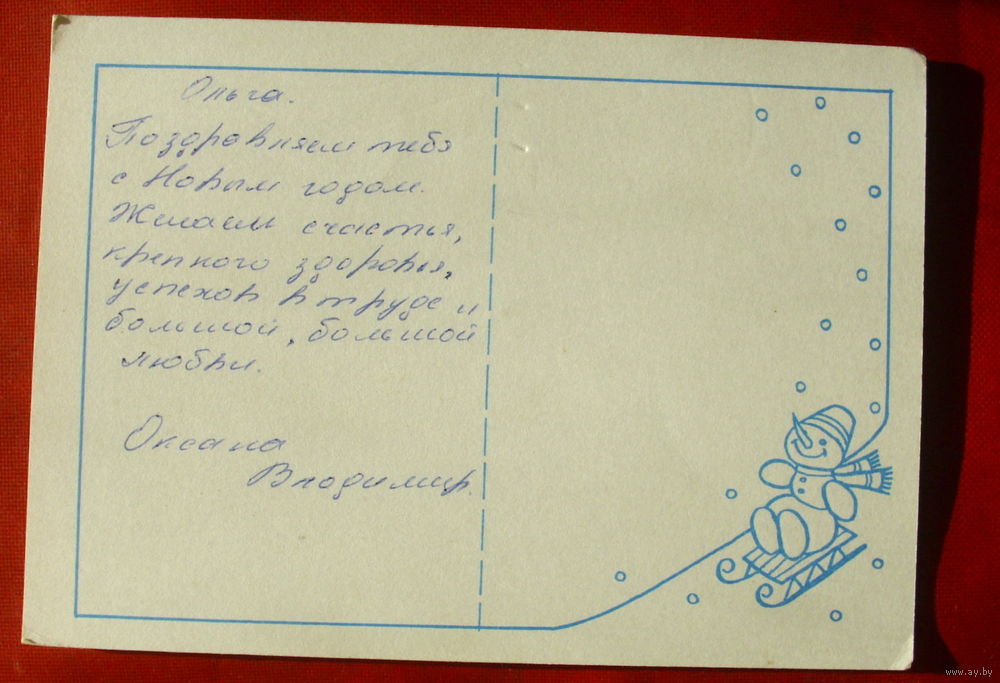 Ольга.
Поздравляем тебя
с Новым годом.
Желаем счастья,
крепкого здоровья,
успехов в труде и
большой, большой
любви.
Оксана
Владимир.
www.ay.by